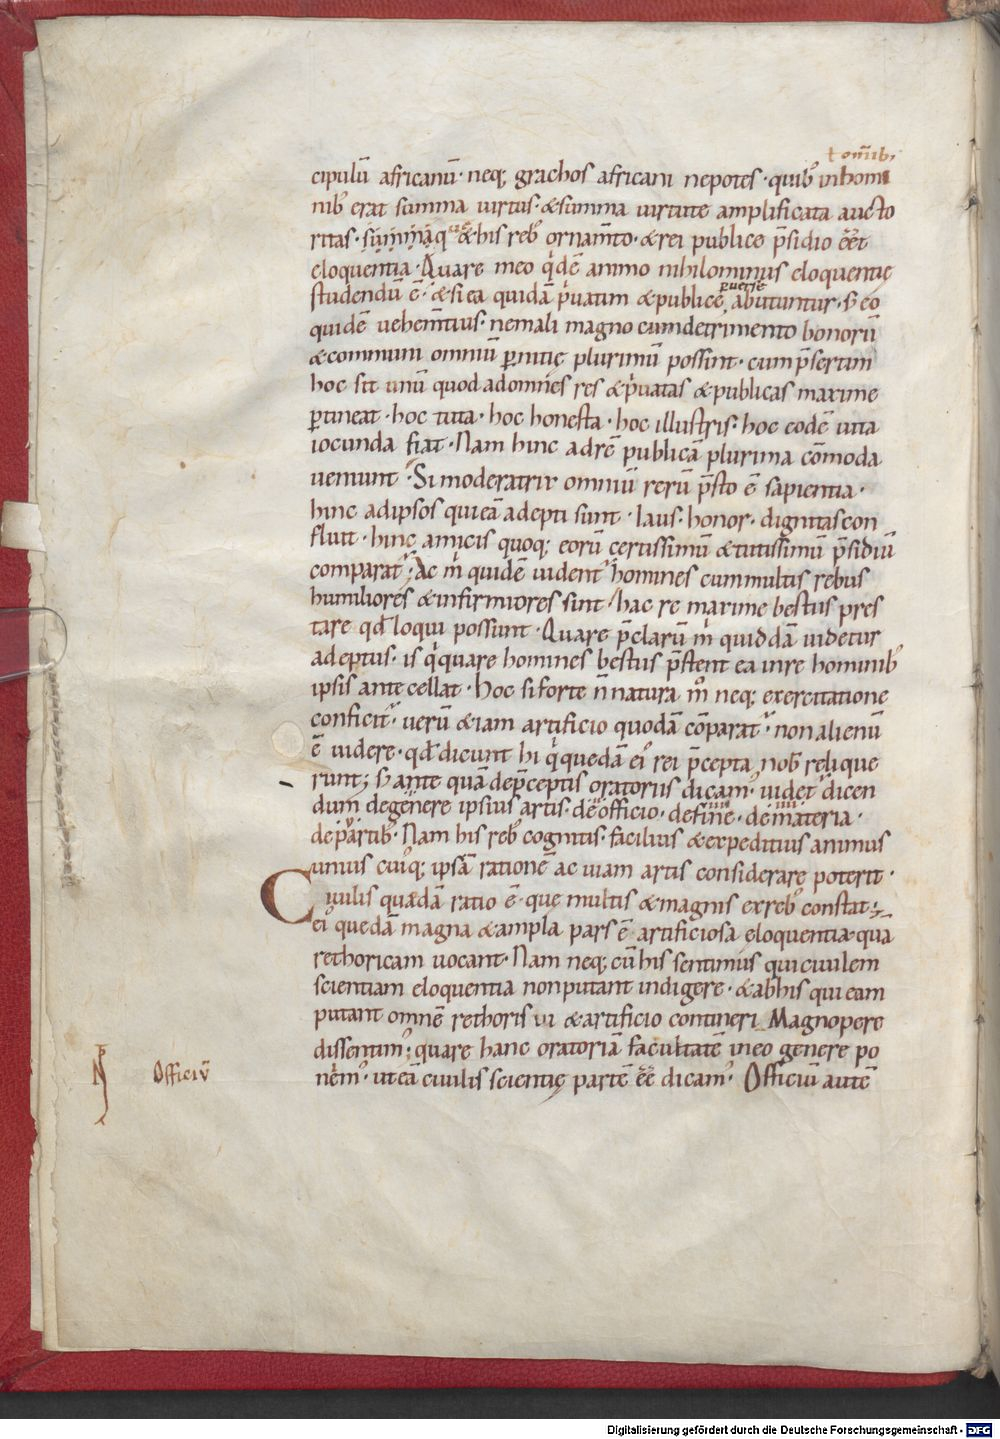 ł omīib;
cipulū africanū · neq; grachos africani nepotes · quib; in homi
nib; erat summa uirtus · & summa uirtute amplificata aucto
ritas · summaq; & his reb; ornam̄to · & rei publice p̄sidio eēt
eloquentia · Quare meo qͥdē animo nihilominus eloquentię
puerse
studendū ē · & si ea quidā pͥuatim & publice abutuntur · S; eo
quidē uehem̄tius · ne mali magno cum detrimento bonorū
& communi omniū p̱nitię plurimū possint · cum p̄sertim
hoc sit unū quod ad omnes res & pͥuatas & publicas maxime
p̱tineat · hoc tuta · hoc honesta · hoc illustris · hoc eodē uita
iocunda fiat · Nam hinc ad rē publicā plurima cōmoda
ueniunt · Si moderatrix omniū rerū p̄sto ē sapientia ·
hinc ad ipsos qui eā adepti sunt · laus · honor · dignitas con
fluit · hinc amicis quoq; eorū certissimū & tutissimū p̄sidiū
comparat᷑ · Ac mͥ quidē uident᷑ homines cum multis rebus
humiliores & infirmiores sint · hac re maxime bestiis pres
tare qđ loqui possunt · Quare p̄clarū mͥ quiddā uidetur
adeptus · is qͥ quare homines bestiis p̄stent ea in re hominib;
ipsis antecellat · Hoc si forte n̄ natura m̊ neq; exercitatione
conficit᷑ · uerū & iam artificio quodā cōparat᷑ · non alienū
ē uidere · qđ dicunt hi qͥ quedā ei᷒ rei p̄cepta nob̄ relique
runt; S; ante quā de p̄ceptis oratoriis dicam᷒ · uidet᷑ dicen
dum de genere ipsius artis · de officio · de fine · de materia ·
de partib; · Nam his reb; cognitis · facilius & expeditius animus
unius cuiq; ipsā rationē ac uiam artis considerare poterit ·
Ciuilis quædā ratio ē · quę multis & magnis ex reb; constat ;
ei᷒ quedā magna & ampla pars ē · artificiosa eloquentia · qua
rethoricam uocant · Nam neq; cū his sentimus qui ciuilem
scientiam eloquentia non putant indigere · & ab his qui eam
putant omnē rethoris ui & artificio contineri Magnopere
dissentim᷒ ; quare hanc oratoriā facultatē in eo genere po
nem᷒ · ut eā ciuilis scientię partē eē dicam᷒ · Officiū autē
Officiū
Digitalisierung gefördert durch die Deutsche Forschungsgemeinschaft - DFG